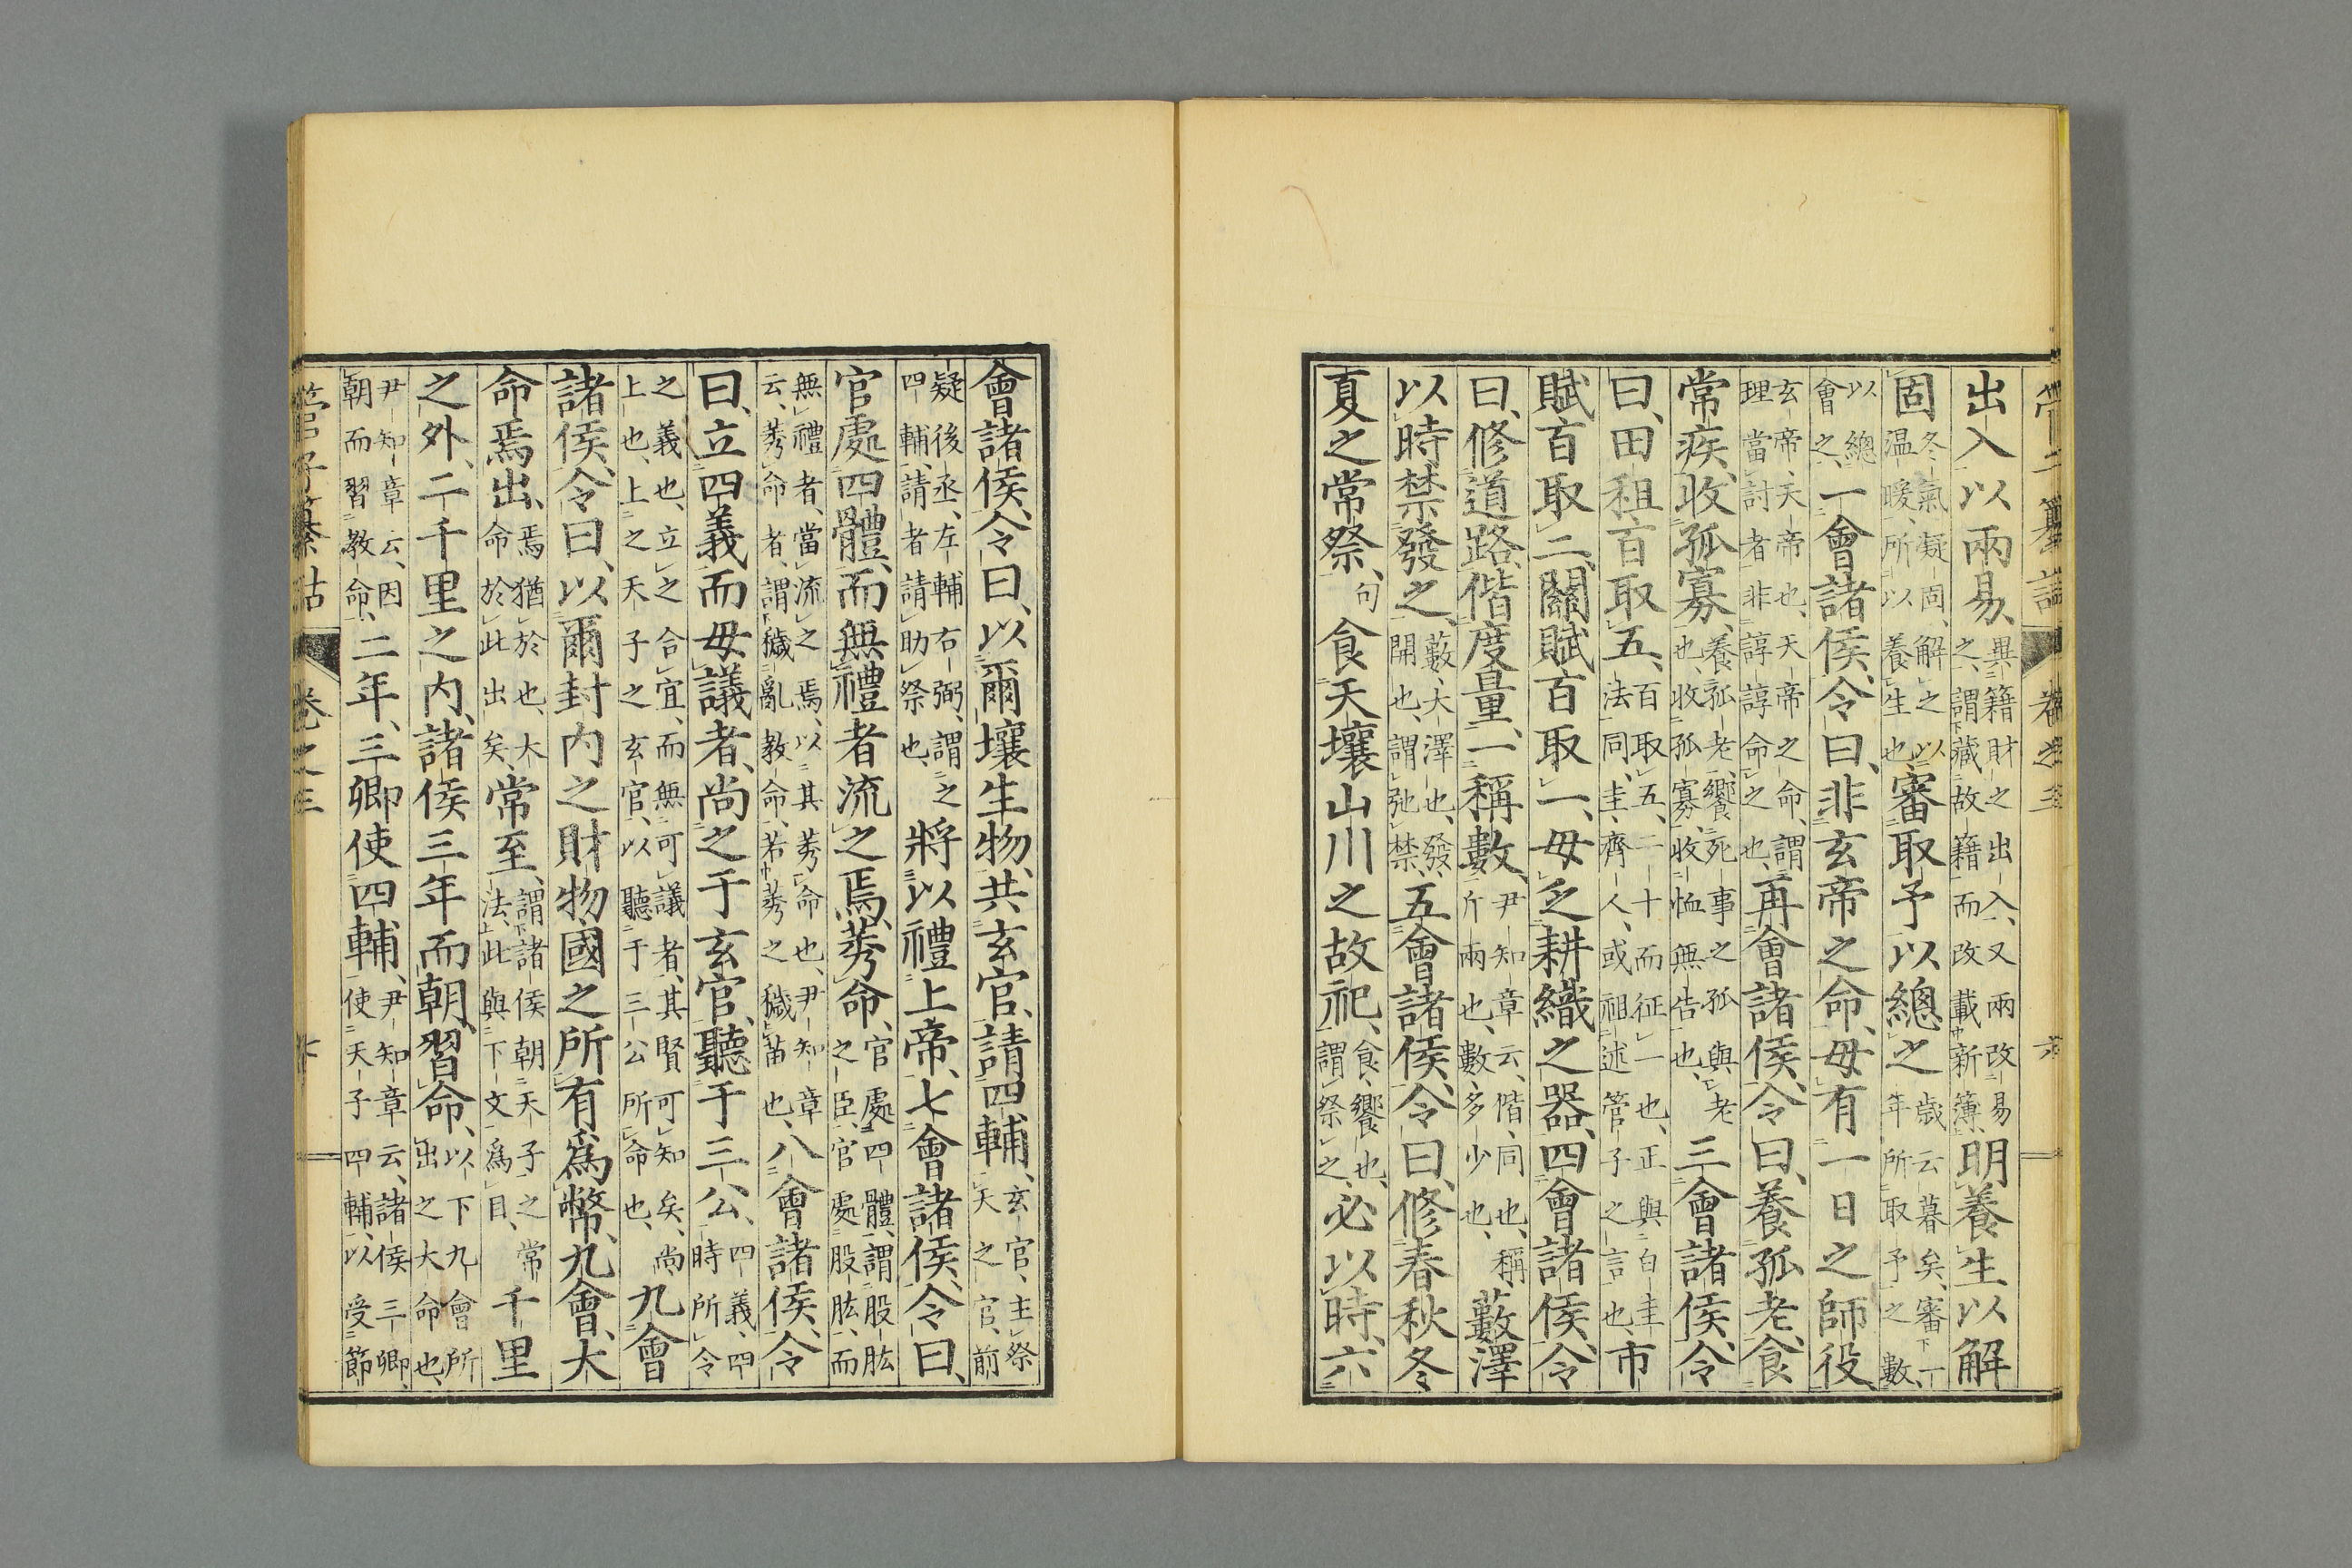 管子纂詁 卷之三 六
出入以兩易、畢籍財之出入、又兩改易之、謂藏故籍而改載新簿、明養生以解
固、冬氣凝固、解之以温暖、所以養生也、審取予以總之、歲云暮矣、審一年所取予之數、
以總會之、一會諸侯、令曰、非玄帝之命、毋有一日之師役、
玄帝、天帝也、天帝之命、謂理當討者、非諄諄命之也、再會諸侯、令曰、養孤老、食
常疾、收孤寡、養孤老、饗死事之孤與老也、收孤寡、收恤無告也、三會諸侯、令
曰、田租百取五、百取五、二十而征一也、正與白圭法同、圭、齊人、或祖述管子之言也、市
賦百取二、關賦百取一、毋乏耕織之器、四會諸侯、令
曰、修道路、偕度量、一稱數、尹知章云、偕、同也、稱、斤兩也、數、多少也、藪澤
以時禁發之、藪、大澤也、發、開也、謂弛禁、五會諸侯、令曰、修春秋冬
夏之常祭、句食天壤山川之故祀、食、饗也、謂祭之、必以時、六
會諸侯、令曰、以爾壤生物、共玄官、請四輔、玄官、主祭天之官、前
疑後丞、左輔右弼、謂之四輔、請者請助祭也、將以禮上帝、七會諸侯、令曰、
官處四體、而無禮者流之焉、莠命、官處四體、謂股肱之臣、官處股肱、而
無禮者、當流之焉、以其莠命也、尹知章云、莠命者、謂穢亂教命、若莠之穢苗也、八會諸侯、令
曰、立四義而毋議者、尚之于玄官、聽于三公、四義、四時所令
之義也、立之合宜、而無可議者、其賢可知矣、尚上也、上之天子之玄官、以聽于三公所命也、九會
諸侯、令曰、以爾封内之財物、國之所有爲幣、九會、大
命焉出、焉猶於也、大命於此出矣、常至、謂諸侯朝天子之常法、此與下文爲目、千里
之外、二千里之内、諸侯三年而朝、習命、以下九會所出之大命也、
尹知章云、因朝而習教命、二年、三卿使四輔、尹知章云、諸侯三卿、使天子四輔、以受節
管子纂詁 卷之三